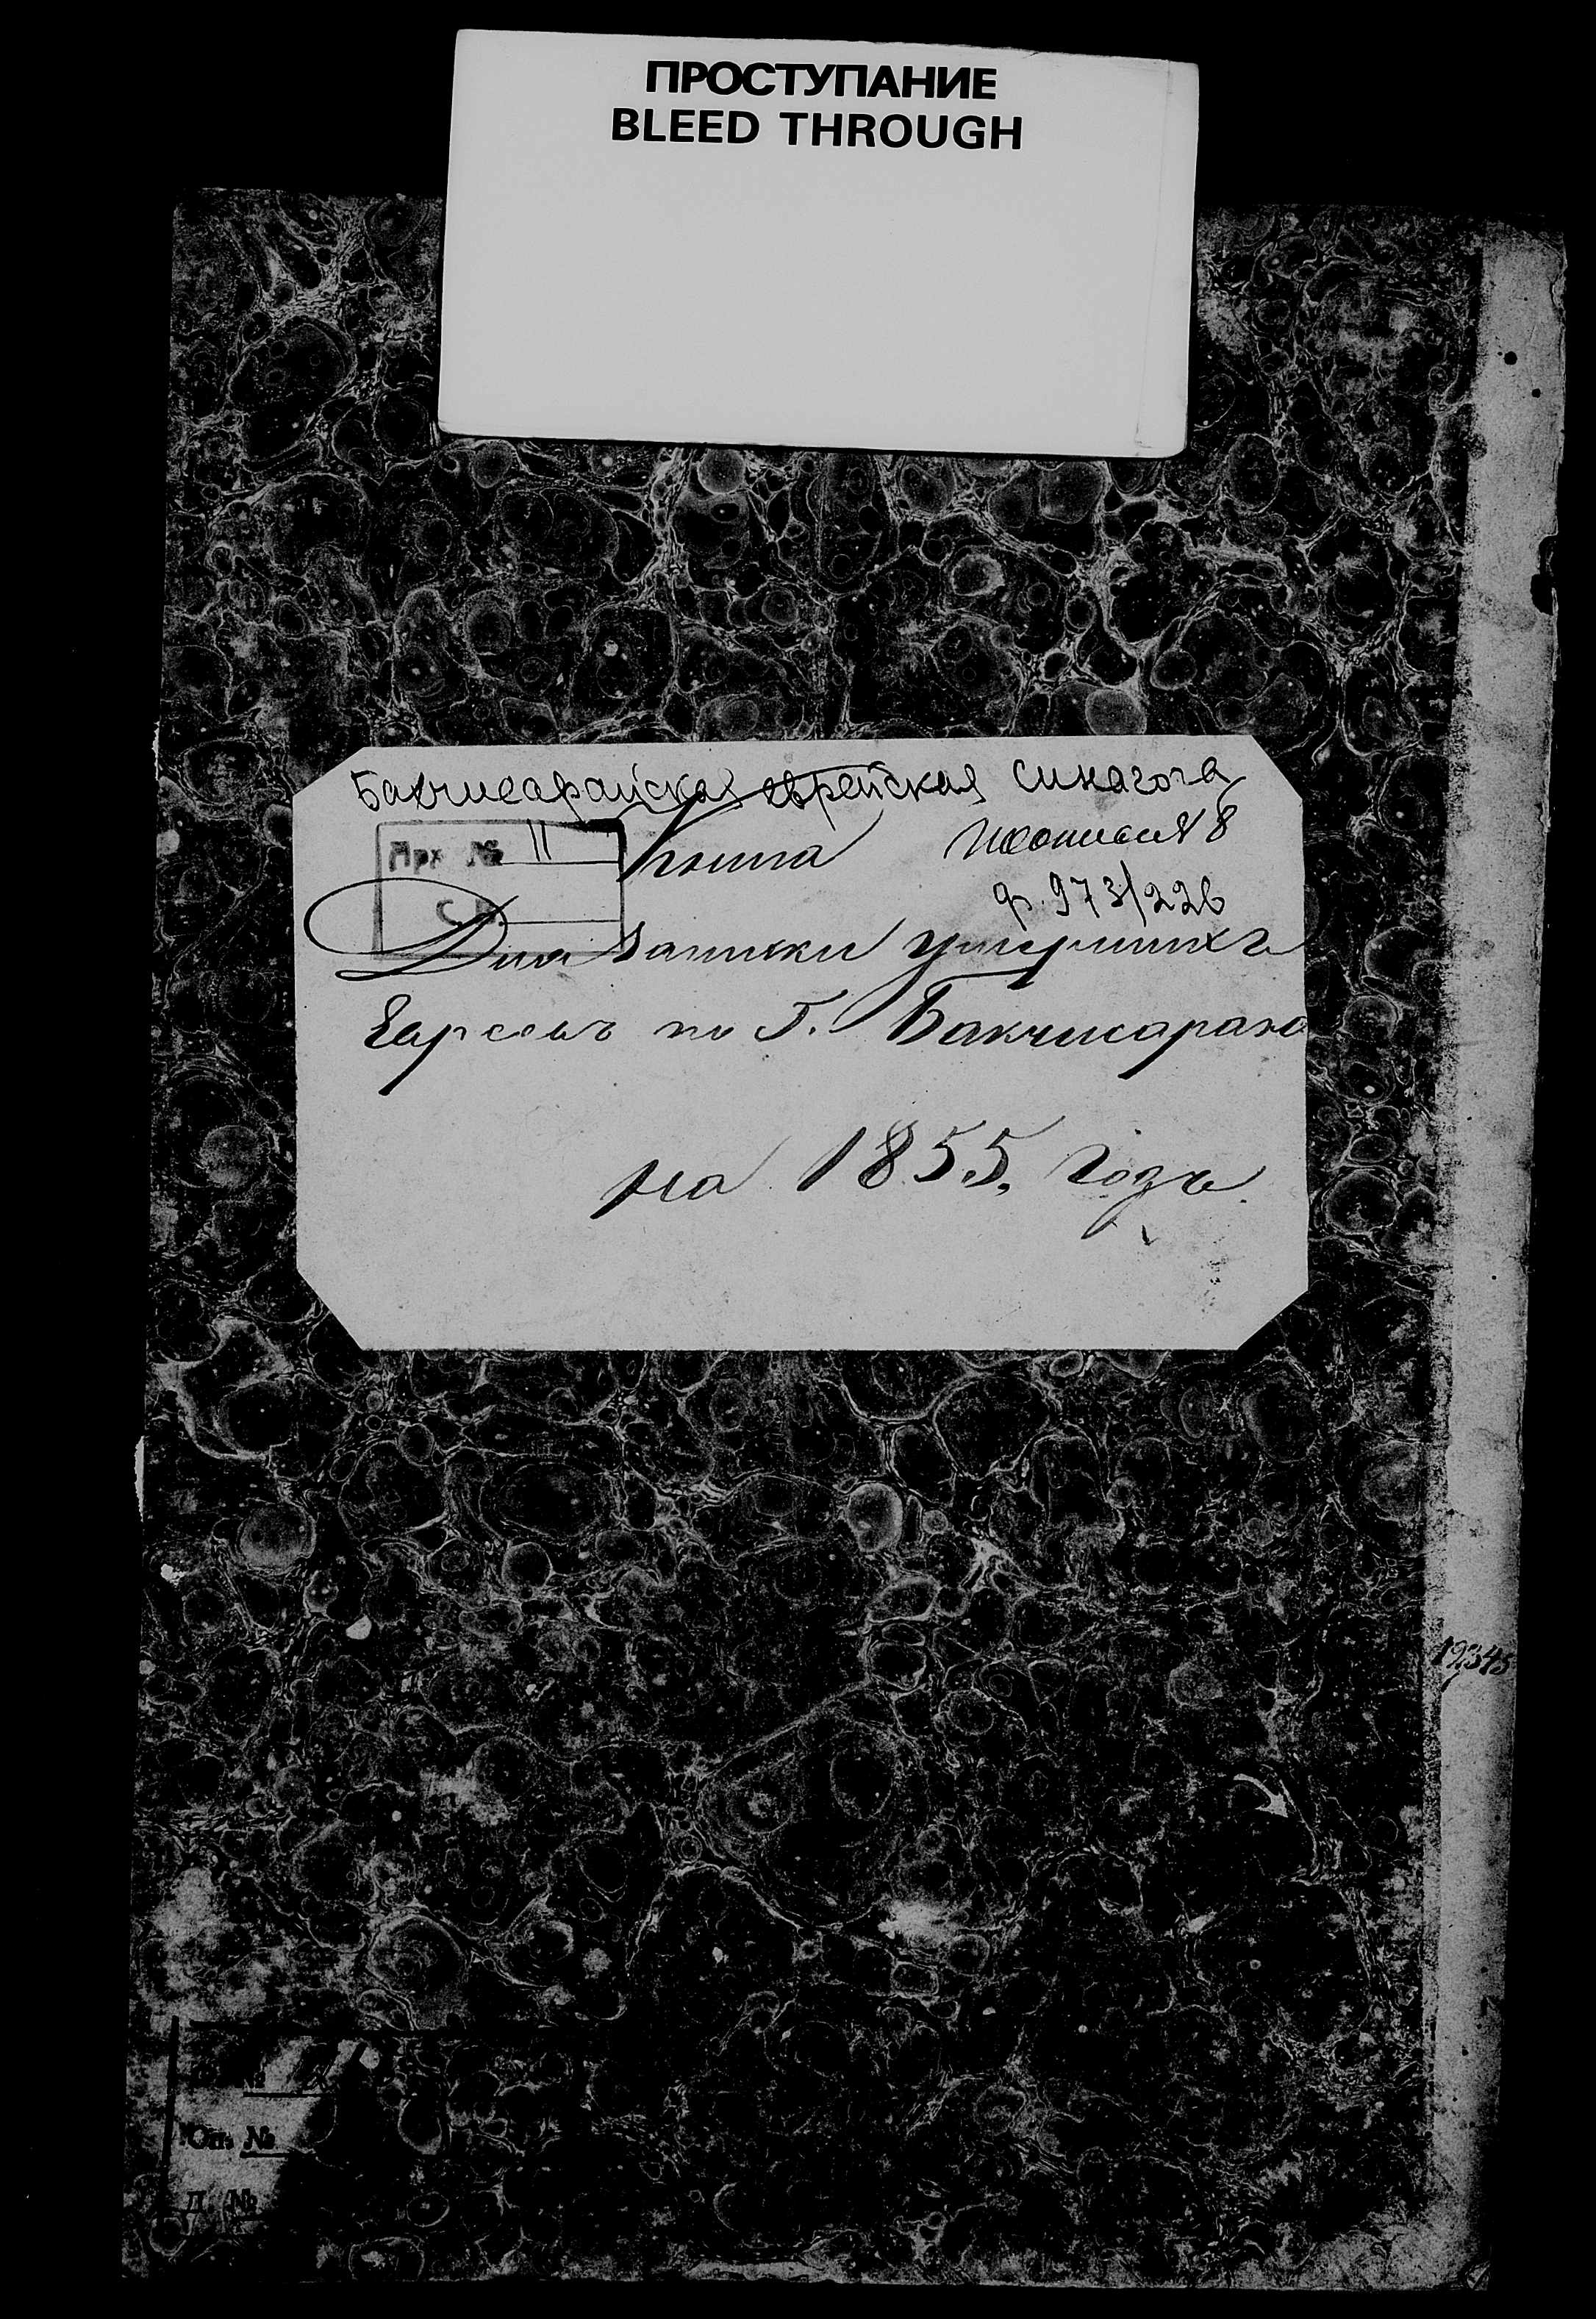 ПРОСТУПАНИЕ
BLEED THROUGH
Бахчисарайская еврейская синагога
Арх № 11
Книга
По описи № 8
ф. 973/226
Для записки умершихъ
Евреевъ по Г. Бакчисараю
на 1855. годъ
Оп. №
Д. №